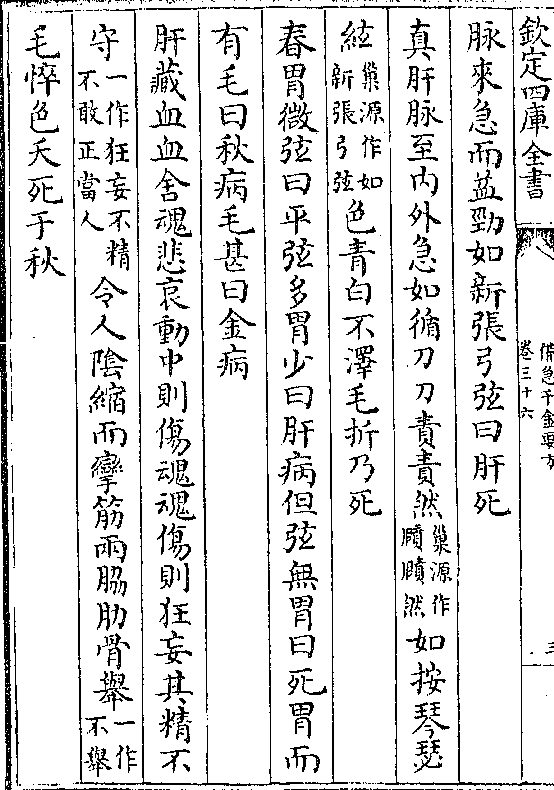 欽定四庫全書
備急千金要方
卷三十六
三
脉來急而益勁如新張弓弦曰肝死
真肝脉至内外急如循刀刃責責然巢源作賾賾然如按琴瑟
絃巢源作如新張弓弦色青白不澤毛折乃死
春胃微弦曰平弦多胃少曰肝病但弦無胃曰死胃而
有毛曰秋病毛甚曰金病
肝藏血血舍魂悲哀動中則傷魂魂傷則狂妄其精不
守一作狂妄不精不敢正當人令人陰縮而攣筋兩脇肋骨舉一作不舉
毛悴色夭死于秋